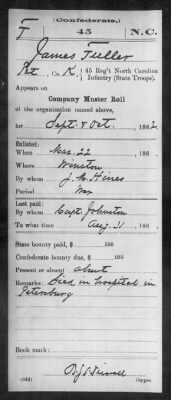 (Confederate.)
T 45 N.C.
James Tuller
Pvt, Co. K, 45 Reg't North Carolina
Infantry (State Troops).
Appears on
Company Muster Roll
of the organization named above,
for Sept & Oct, 1862.
Enlisted:
When Mar. 22, 186
Where Winston
By whom J. M. Hines
Period War
Last paid:
By whom Capt. Johnston
To what time Aug. 31, 186
State bounty paid, $ 100
Confederate bounty due, $ 100
Present or absent absent
Remarks: Died in hospital in
Petersburg
Book mark:
(642)
Copyist.